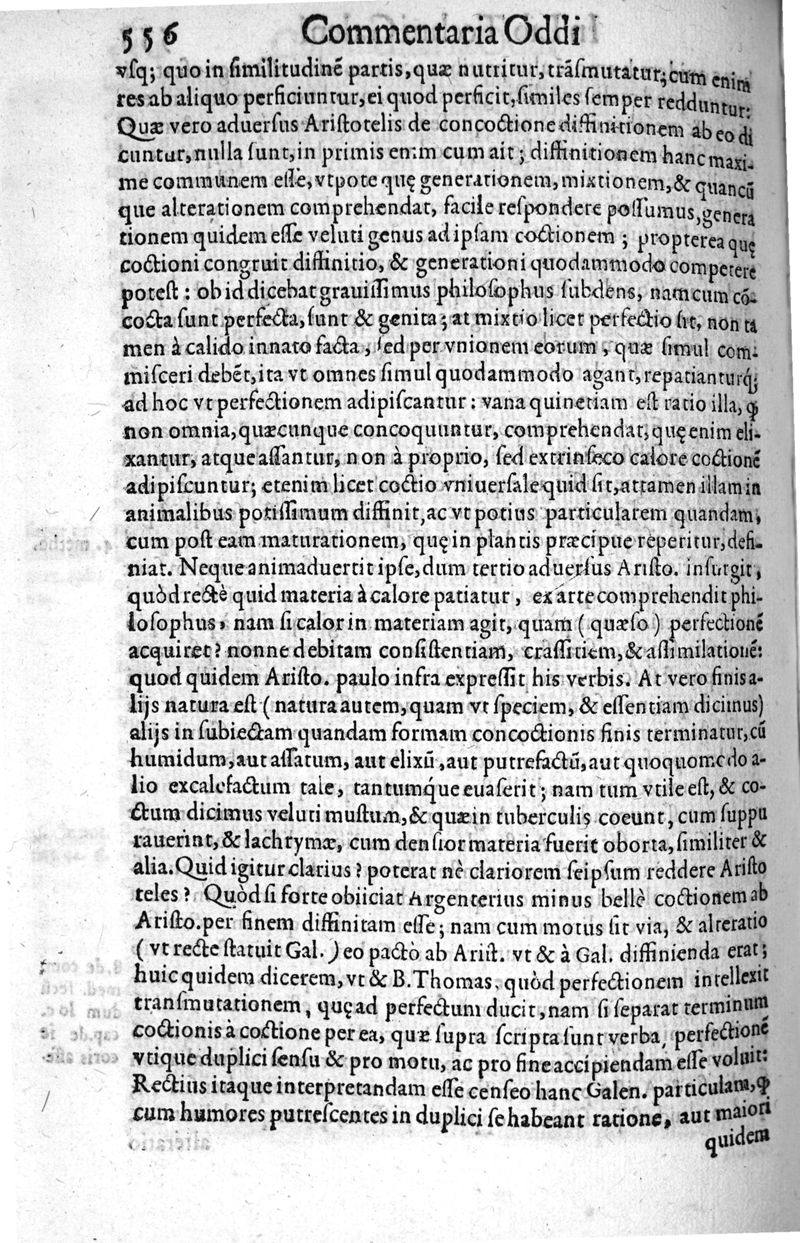 556 Commentaria Oddi
vsq; quo in similitudinē partis, quæ nutritur, trāsmutatur; cum enim
res ab aliquo perficiuntur, ei quod perficit, similes semper redduntur:
Quæ vero aduersus Aristotelis de concoctione diffinitionem ab eo di
cuntur, nulla sunt, in primis enim cum ait; diffinitionem hanc maxi-
me communem essè, vtpote quę generationem, mixtionem, & quancū
que alterationem comprehendat, facile respondere possumus, genera
tionem quidem esse veluti genus ad ipsam coctionem; propterea quę
coctioni congruit diffinitio, & generationi quodammodo competere
potest: ob id dicebat grauissimus philosophus subdens, nam cum cō-
cocta sunt perfecta, sunt & genita; at mixtio licet perfectio sit, non ta
men à calido innato facta, sed per vnionem eorum, quæ simul com-
misceri debēt, ita vt omnes simul quodammodo agant, repatianturq́;
ad hoc vt perfectionem adipiscantur: vana quinetiam est ratio illa, ꝙ
non omnia, quæcunque concoquuntur, comprehendat, quę enim eli-
xantur, atque assantur, non à proprio, sed extrinseco calore coctionē
adipiscuntur; etenim licet coctio vniuersale quid sit, attamen illam in
animalibus potissimum diffinit, ac vt potius particularem quandam,
cum post eam maturationem, quę in plantis præcipue reperitur, defi-
niat. Neque animaduertit ipse, dum tertio aduersus Aristo. insurgit,
quòd rectè quid materia à calore patiatur, ex arte comprehendit phi-
losophus, nam si calor in materiam agit, quam (quæso) perfectionē
acquiret? nonne debitam consistentiam, crassitiem, & assimilationē:
quod quidem Aristo. paulo infra expressit his verbis. At vero finis a-
lijs natura est (natura autem, quam vt speciem, & essentiam dicimus)
alijs in subiectam quandam formam concoctionis finis terminatur, cū
humidum, aut assatum, aut elixū, aut putrefactū, aut quoquomodo a-
lio excalefactum tale, tantumq́ue euaserit; nam tum vtile est, & co-
ctum dicimus veluti mustum, & quæ in tuberculis coeunt, cum suppu
rauerint, & lachrymæ, cum densior materia fuerit oborta, similiter &
alia. Quid igitur clarius? poterat nè clariorem seipsum reddere Aristo
teles? Quòd si forte obiiciat Argenterius minus bellè coctionem ab
Aristo. per finem diffinitam esse; nam cum motus sit via, & alteratio
(vt recte statuit Gal.) eo pactò ab Arist. vt & à Gal. diffinienda erat;
huic quidem dicerem, vt & B. Thomas. quòd perfectionem intellexit
transmutationem, quę ad perfectum ducit, nam si separat terminum
coctionis à coctione per ea, quæ supra scripta sunt verba, perfectionē
vtique duplici sensu & pro motu, ac pro fine accipiendam esse voluit:
Rectius itaque interpretandam esse censeo hanc Galen. particulam, ꝙ
cum humores putrescentes in duplici se habeant ratione, aut maiori
quidem